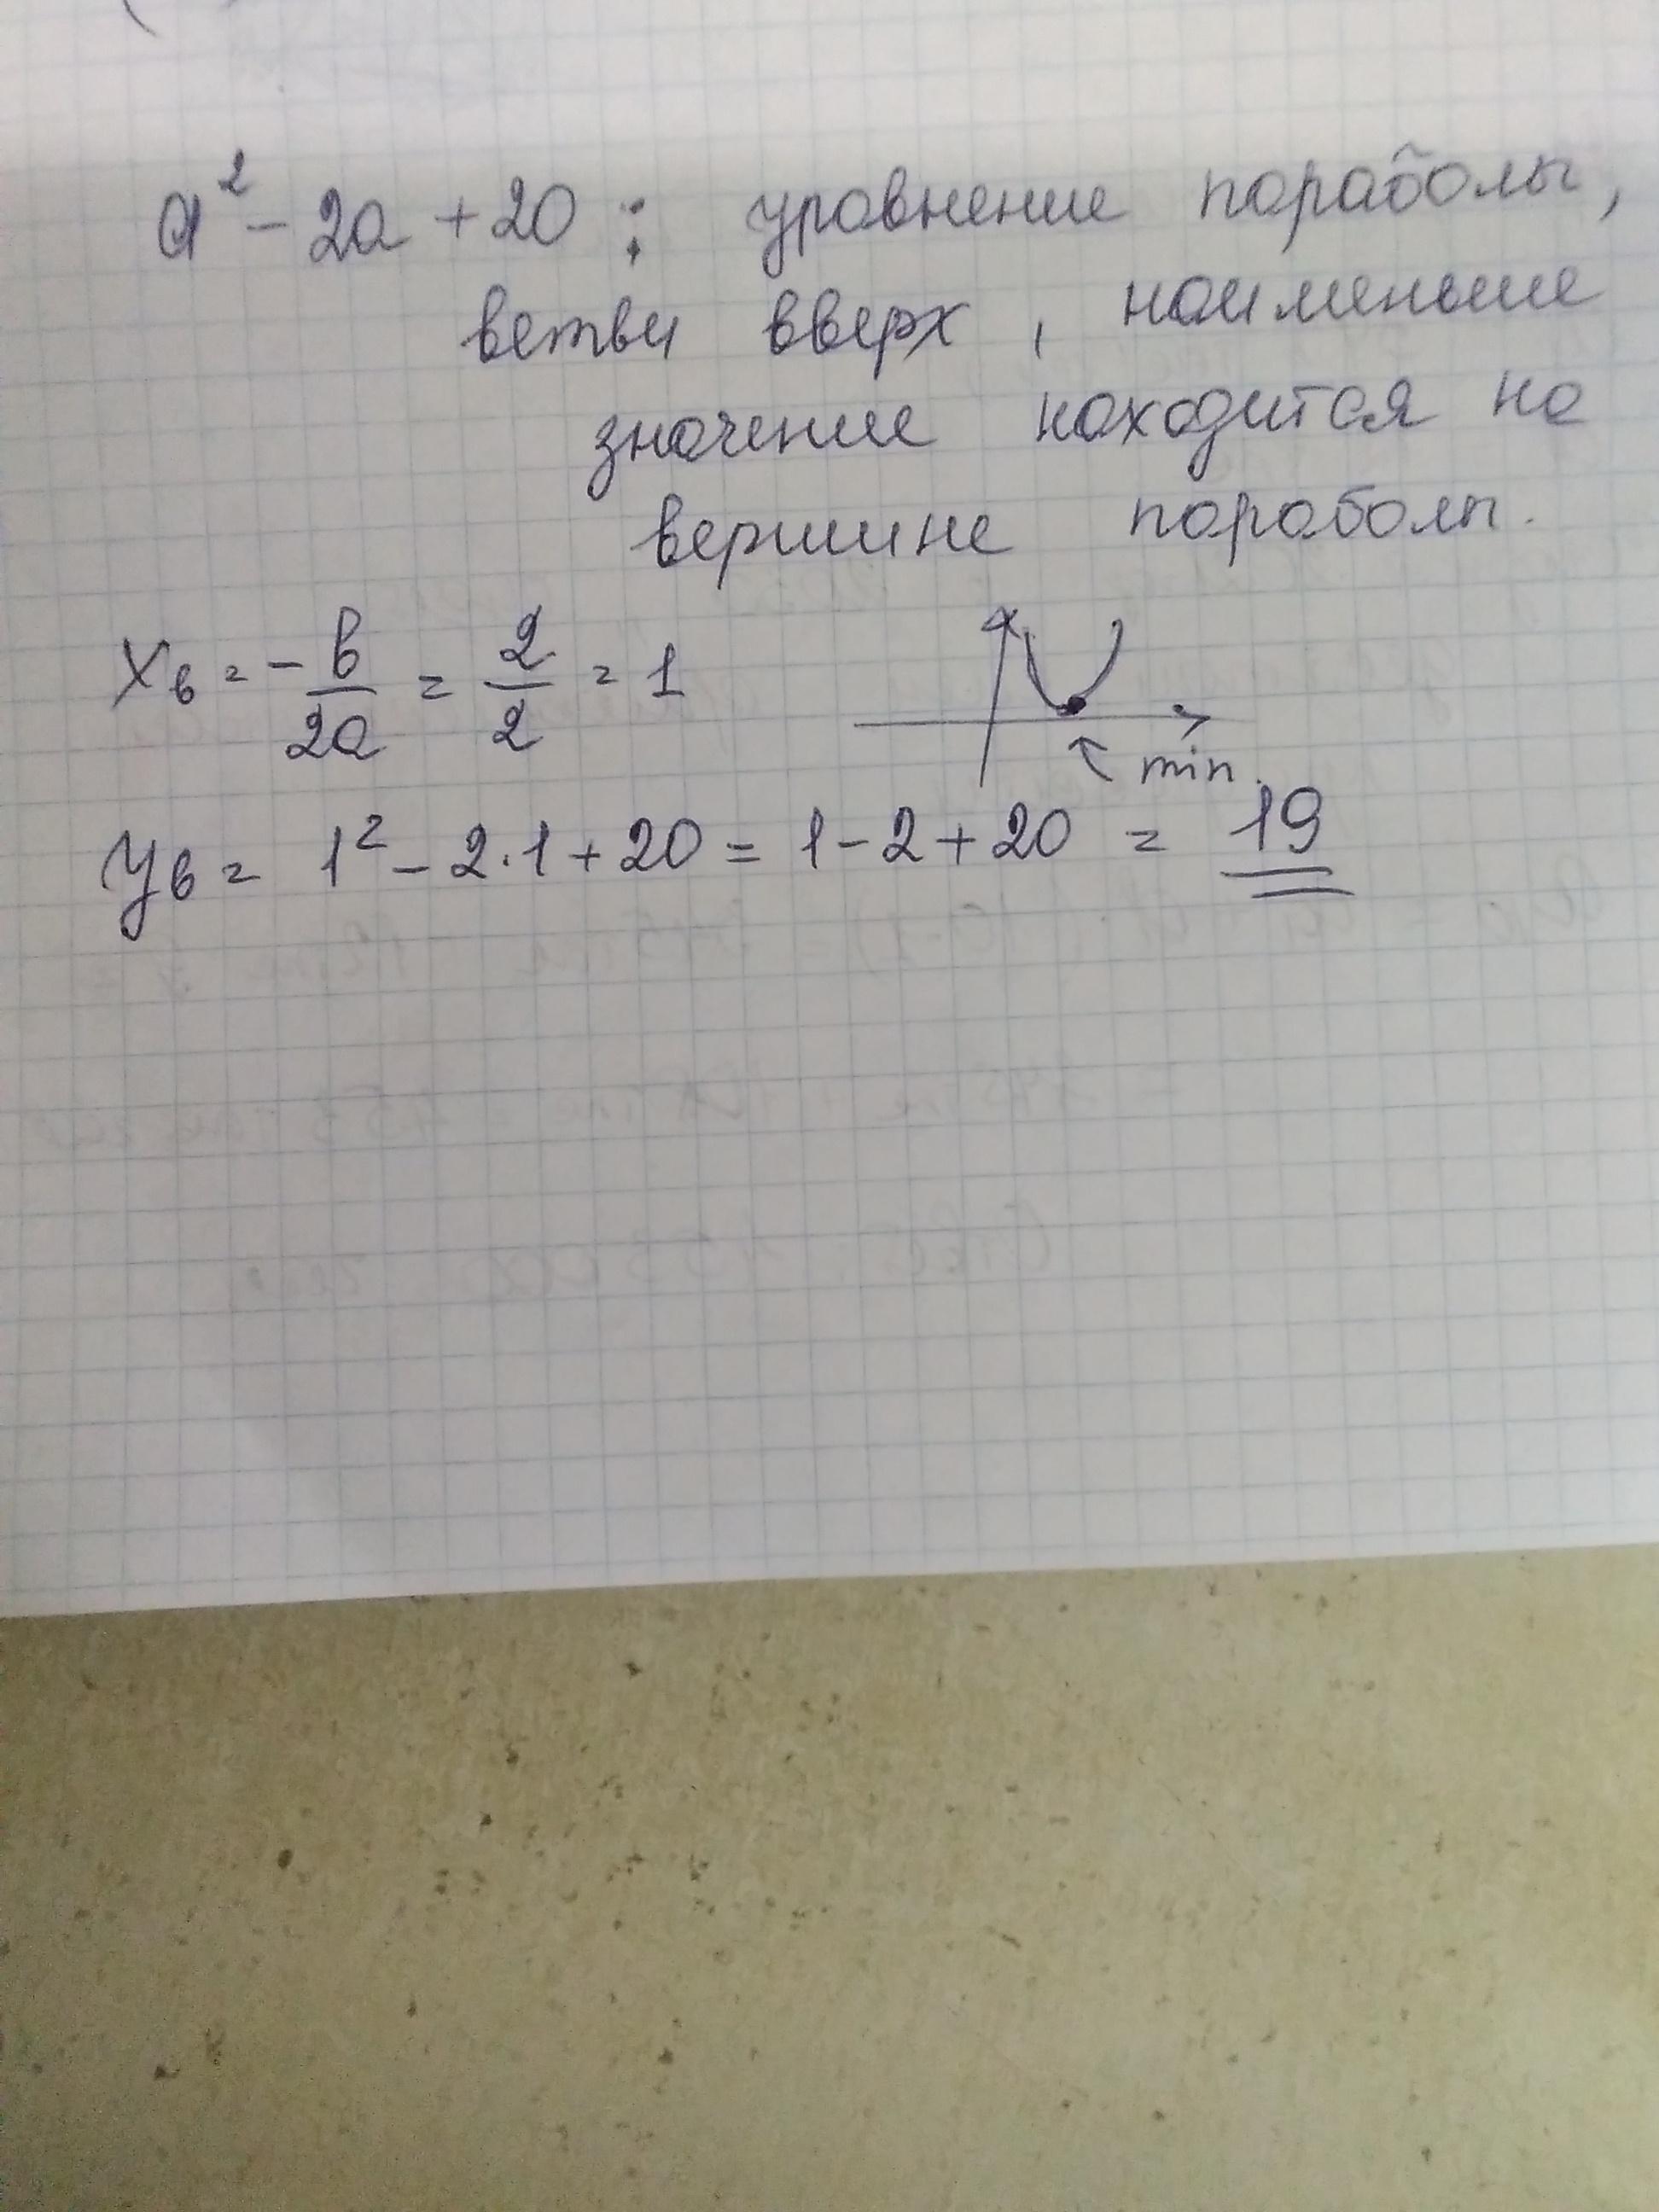 a² - 2a + 20 : уровнение параболы,
ветви вверх, наименьшие
значение находится на
вершине параболы.
xв = - b/2a = 2/2 = 1
min.
yв = 1² - 2·1 + 20 = 1 - 2 + 20 = 19